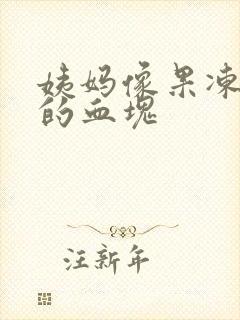 姨妈像果冻
的血塊
汪新年